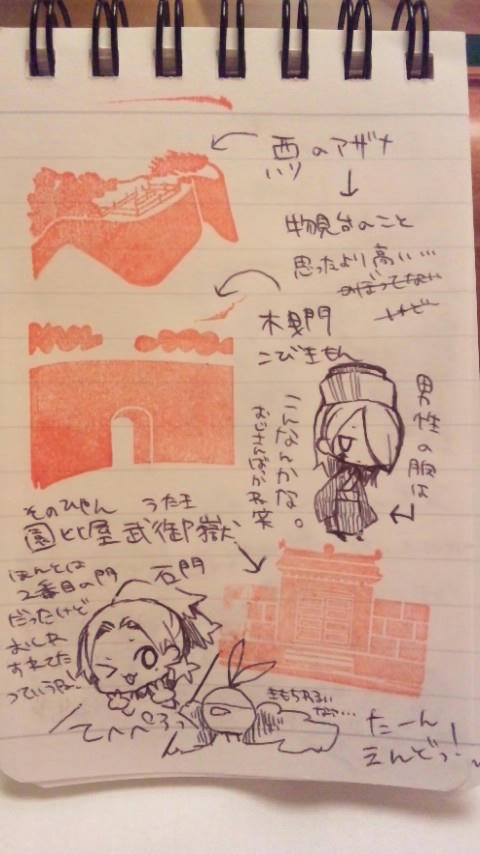 西のアザナ
いり
物見台のこと
思ったより高い…
のぼってない
けど
木曳門
こびきもん
男性の服は
こんなんかな。
おじさんばっかね笑
そのひゃん うたき
園比屋武御嶽
石門
ほんとは
2番目の門
だったけど
おしわすれてた
っていうね。
てへぺろっ
きもちわるい
なあ…
たーん
えんどっ!